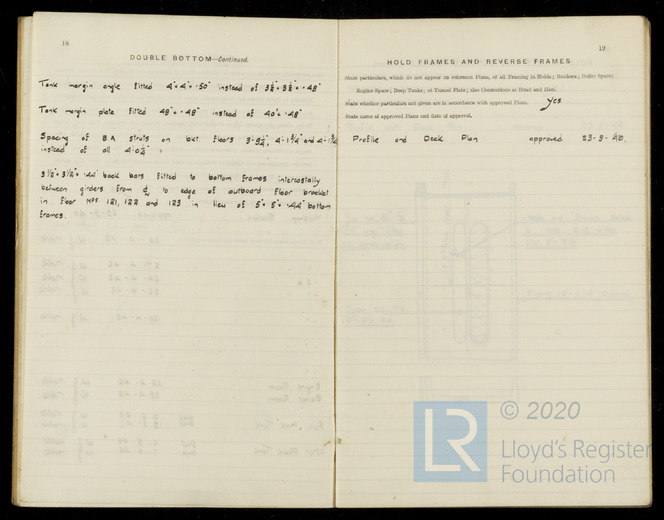 18
DOUBLE BOTTOM—Continued.
Tank margin angle fitted 4" × 4" × .50" instead of 3½" × 3½" × .48"
Tank margin plate fitted 48" × .48" instead of 40" × .48"
Spacing of B.A struts on bkt. floors
instead of all
3½" × 3½" × .44" back bars fitted to bottom frames intercostally
between girders from to edge of outboard floor bracket
in floor Nos. 121, 122 and 123 in lieu of 5" × 5" × .44" bottom
frames.
19
HOLD FRAMES AND REVERSE FRAMES
State particulars, which do not appear on reference Plans, of all Framing in Holds; Bunkers; Boiler Space;
Engine Space; Deep Tanks; at Tunnel Flats; also Connections at Head and Heel.
State whether particulars not given are in accordance with approved Plans. yes
State name of approved Plans and date of approval.
Profile and Deck Plan approved
LR © 2020
Lloyd's Register
Foundation